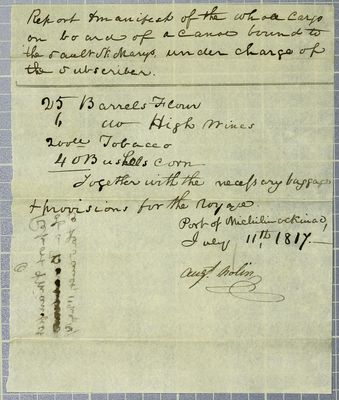 Report & manifest of the whole Cargo
on board of a Canoe bound to
the Sault St Marys, under charge of
the Subscriber.
25 Barrels Flour
6 do High Wines
Tobacco
40 Bushels Corn
Together with the necessary baggage
& provisions for the Voyage
Port of Michilimackinac,
July 11th, 1817.
Augt Nolin